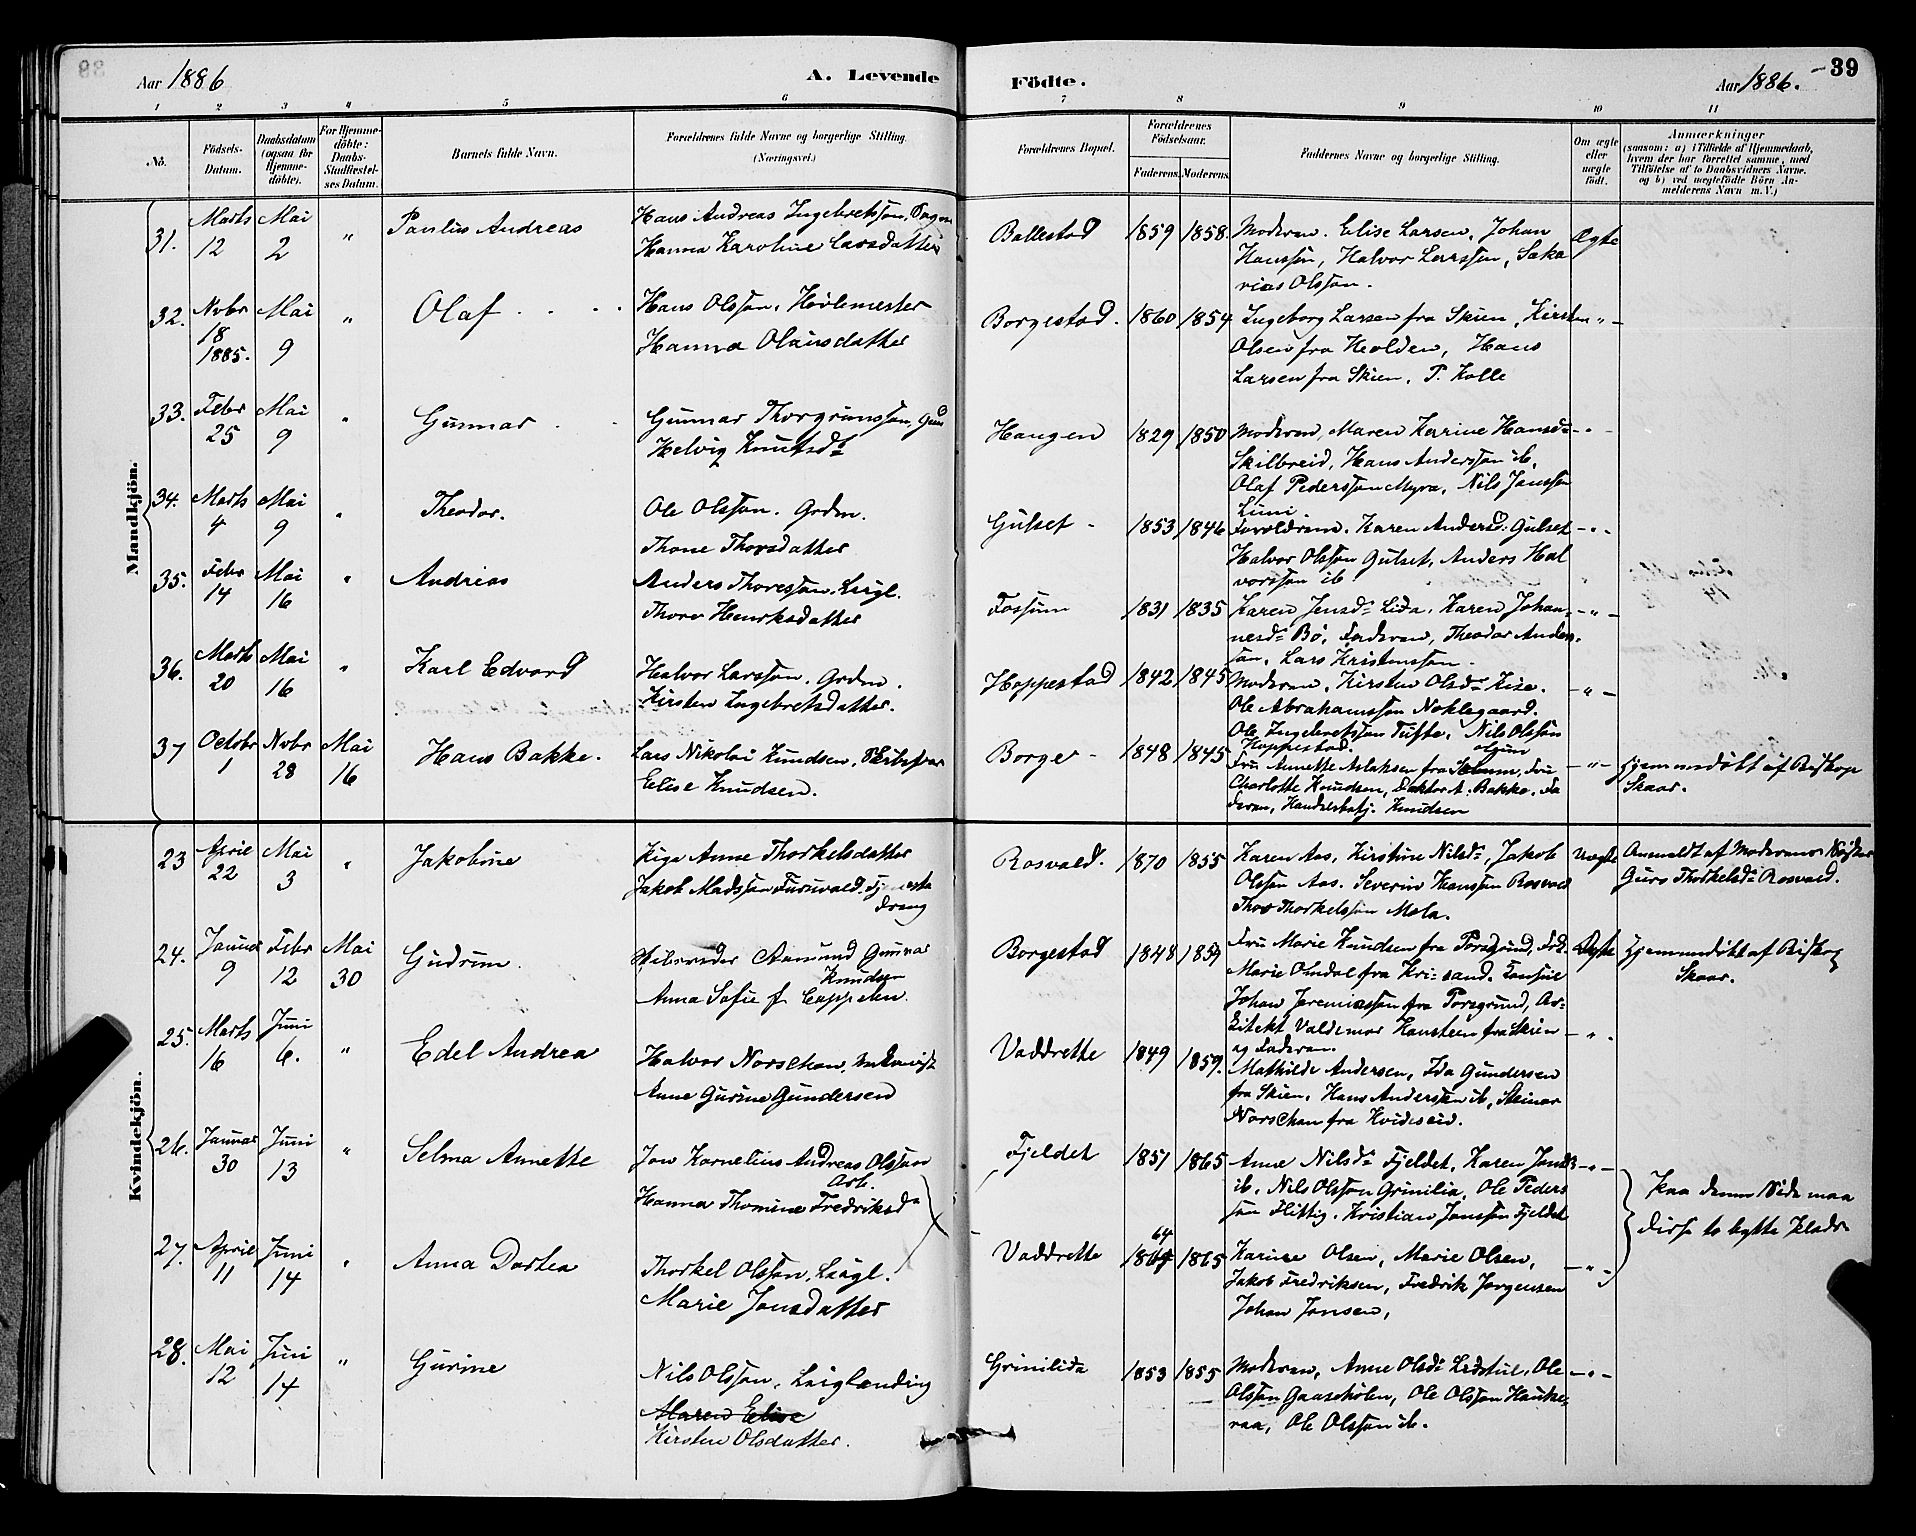 Aar 1886
A. Levende
Födte.
Aar 1886.
39
1 2 3 4 5 6 7 8 9 10 11
No.
Födsels-Datum.
Daabsdatum (ogsaa for Hjemmedöbte).
For Hjemmedöbte: Daabs-Stadfæstelses Datum.
Barnets fulde Navn.
Forældrenes fulde Navne og borgerlige Stilling.
(Næringsvei.)
Forældrenes Bopæl.
Forældrenes Födselsaar.
Faderens. Moderens.
Faddernes Navne og borgerlige Stilling.
Om ægte eller uægte födt.
Anmærkninger
(saasom: a) i Tilfælde af Hjemmedaab, hvem der har forrettet samme, med Tilföielse af to Daabsvidners Navne, og b) ved uægtefödte Börn Anmelderens Navn m. V.)
Mandkjön.
31. Marts 12 Mai 2 " Paulus Andreas
Hans Andreas Ingebretsson,
Hanna Karoline Larsdatter
Ballestad 1859 1858.
Moderen. Elise Larsen, Johan
Hansson, Halvor Larsson, Saka
rias Olsson.
Ægte
32. Nvbr 18 1885. Mai 9 " Olaf
Hans Olsson, Hövlemester
Hanna Olausdatter
Borgestad. 1860 1854
Ingeborg Larsen fra Skien, Kirsten "
Olsen fra Heolden, Hans
Larsen fra Skien, P. Kolle
33. Febr 25 Mai 9 " Gunnar
Gunnar Thorgrimsson,
Helvig Knutsdr
Haugen 1829 1850
Moderen, Maren Karine Hansdr - " -
Skilbreid, Hans Andersson ib,
Olaf Pedersson Myra, Nils Jansson
Lumi
34. Marts 4 Mai 9 " Theodor.
Ole Olsson. Grdm.
Thone Thorsdatter
Gulset - 1853 1846
Forældrene. Karen Andersd: Gulset - " -
Halvor Olsson Gulset, Anders Hal
vorsson ib
35. Febr 14 Mai 16 " Andreas
Anders Thoresson, Leigl.
Thore Henriksdatter
Fossum 1831 1835
Karen Jensdr Lida, Karen Johan- - " -
nesdr Bö, Faderen, Theodor Anders-
son, Lars Kristensson.
36. Marts 20 Mai 16 " Karl Edvard
Halvor Larsson, Grdm.
Kirsten Ingebretsdatter.
Hoppestad 1842 1845
Moderen, Kirsten Olsdr Kise. - " -
Ole Abrahamsson Neklegaard.
Ole Ingebretsson Tufte, Nils Olsson
Hoppestad.
37 Octobr 1 Nvbr 28 Mai 16 Hans Bakke.
Lars Nikolai Knudsen, Skibsfører
Elise Knudsen.
Borge - 1848 1845
Fru Annette Aslaksen fra Solum, Fru - " -
Charlotte Knudsen, Doktor A. Bakke, Fa
deren, Handelsbetj. Knudsen
Hjemmedöbt af Biskop
Skaar.
Kvindekjön.
23 April 22 Mai 3 " Jakobine
Pige Anne Thorkelsdatter
Jakob Madsson Furuvald, Tjeneste
dreng
Rosvald. 1870 1855
Karen Aas, Kirstine Nilsdr, Jakob
Olsson Aas. Severin Hansson Rosvald
Thor Thorkelsson Mela.
Uægte
Anmeldt af Moderens Söster
Guro Thorkelsdr Rosvald.
24. Januar 9 Febr 12 Mai 30 Gudrun.
Skibsreder Aamund Gunnar
Knudsen
Anna Sofie f. Cappelen.
Borgestad 1848 1859
Fru Marie Knudsen fra Porsgrund, Frk.
Marie Omdal fra Kri-sand. Konsul
Johan Jeremiassen fra Porsgrund, Ar-
kitekt Valdemar Hansteen fra Skien
og Faderen.
Ægte
Hjemmedöbt af Biskop
Skaar.
25. Marts 16 Juni 6. " Edel Andrea
Halvor Norschau,
Anne Gurine Gundersen
Vaddrette 1849 1859.
Mathilde Andersen, Ida Gundersen - " -
fra Skien, Hans Anderssen ib, Steinar
Norschau fra Kvideseid.
26. Januar 30 Juni 13 " Selma Annette
Jon Kornelius Andreas Olsson
Arb.
Hanna Thomine Fredriksda
Fjeldet 1857 1865
Anne Nilsdr Fjeldet, Karen Jansdr - " -
ib, Nils Olsson Grinilia, Ole Peders
son Flittig, Kristian Jansson Fjeldet
Paa denne Side maa
disse to bytte Plads
27. April 11 Juni 14 " Anna Dortea
Thorkel Olsson, Leigl.
Marie Jonsdatter
Vaddrette 64 1865
Karine Olsen, Marie Olsen, - " -
Jakob Fredriksen, Fredrik Jörgensen
Johan Jansen,
28. Mai 12 Juni 14 " Gurine
Nils Olsson, Leiglending
Maren Elise
Kirsten Olsdatter.
Grinilida 1853 1855
Moderen, Anne Olsdr Ledstul, Ole - " -
Olsson Gaaseholen, Ole Olsson Hauke-
raa, Ole Olsson ib.